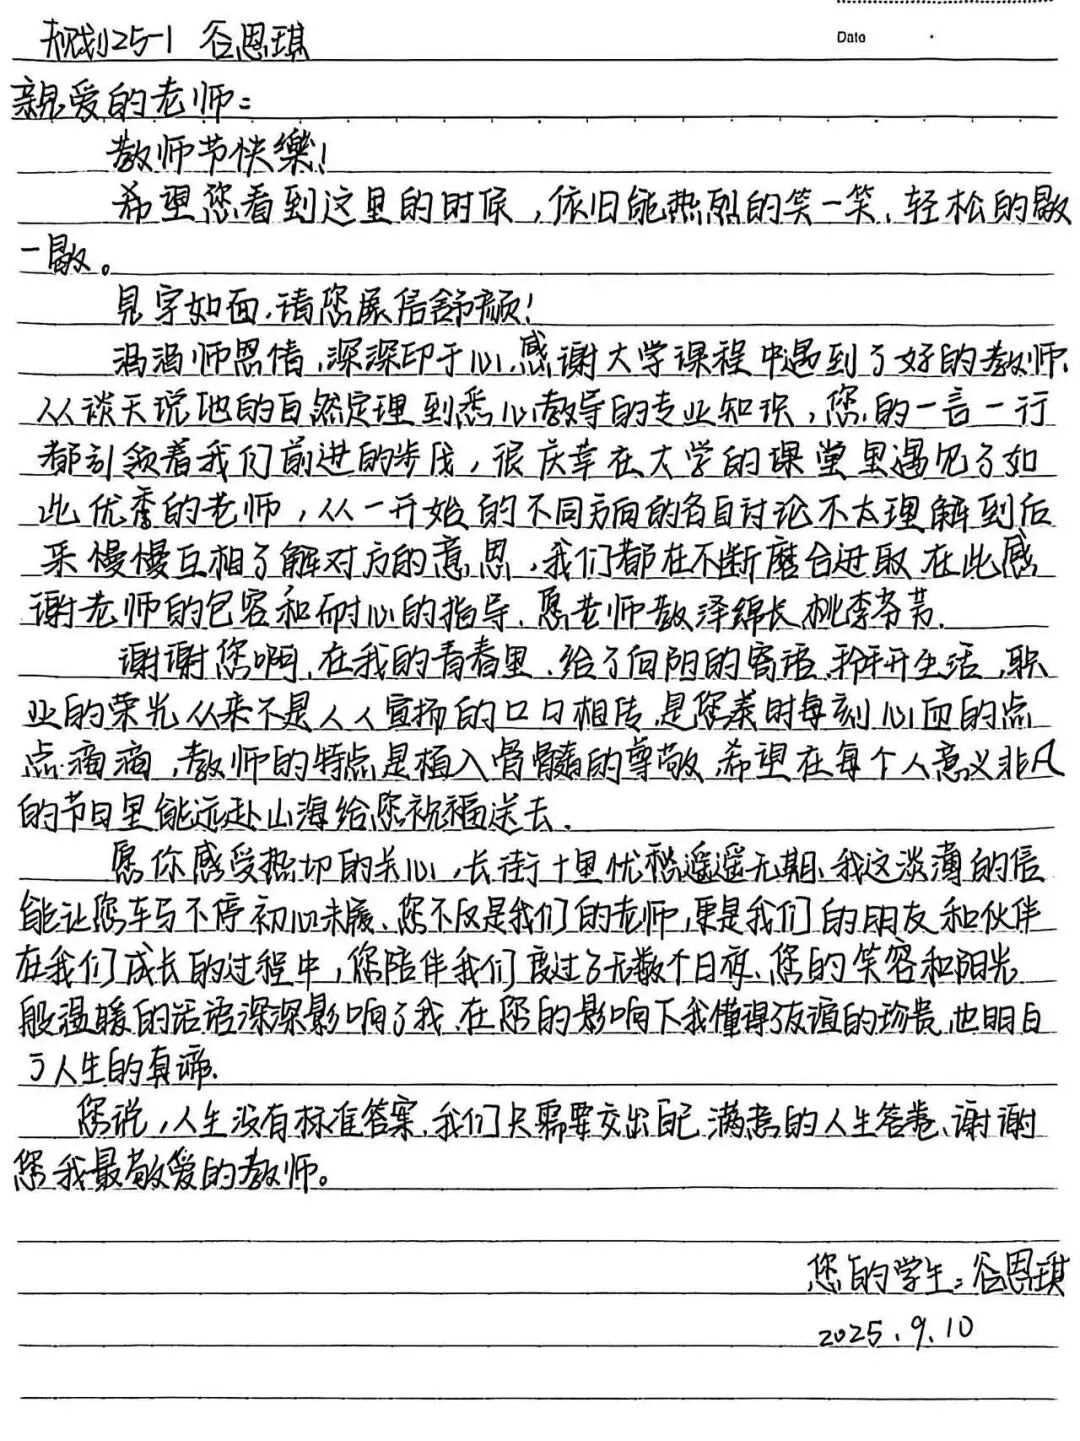 规划25-1 谷恩琪
Date
亲爱的老师：
教师节快樂！
希望您看到这里的时候，依旧能热烈的笑一笑、轻松的歇
一歇。
見字如面，请您展信舒颜！
涓涓师恩情，深深印于心，感谢大学课程中遇到了好的教师，
从谈天说地的自然定理到悉心教导的专业知识，您的一言一行
都引领着我们前进的步伐，很庆幸在大学的课堂里遇见了如
此优秀的老师，从一开始的不同方向的各自讨论不太理解到后
来慢慢互相了解对方的意思，我们都在不断磨合进取，在此感
谢老师的包容和耐心的指导，愿老师教泽绵长，桃李芬芳.
谢谢您啊，在我的青春里，给了向阳的寄语，拆开生活，职
业的荣光从来不是人人宣扬的口口相传，是您美时每刻心血的点
点滴滴，教师的特点是植入骨髓的尊敬，希望在每个人意义非凡
的节日里能远赴山海给您祝福送去.
愿你感受热切的关心，长街十里忧愁遥遥无期、我这淡薄的信
能让您车马不停初心未废、您不仅是我们的老师，更是我们的朋友和伙伴
在我们成长的过程中，您陪伴我们度过了无数个日夜、您的笑容和阳光
般温暖的话语深深影响了我，在您的影响下我懂得了友谊的珍贵，也明白
了人生的真谛.
您说，人生没有标准答案，我们只需要交出自己满意的人生答卷、谢谢
您我最敬爱的教师。
您的学生：谷恩琪
2025.9.10